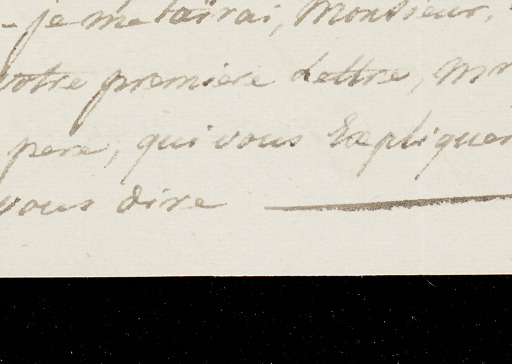 - je me tairai, Monsieur,
votre premiere Lettre, Mr
pere, qui vous Expliquer
vous dire